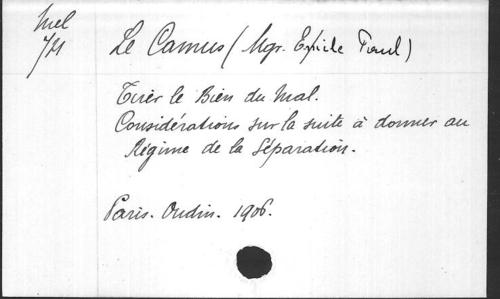 Mel
7/21
Le Camus (Mgr. Emile Paul)
Tirer le Bien du Mal.
Considérations sur la suite à donner au
Régime de la Séparation.
Paris. Oudin. 1906.